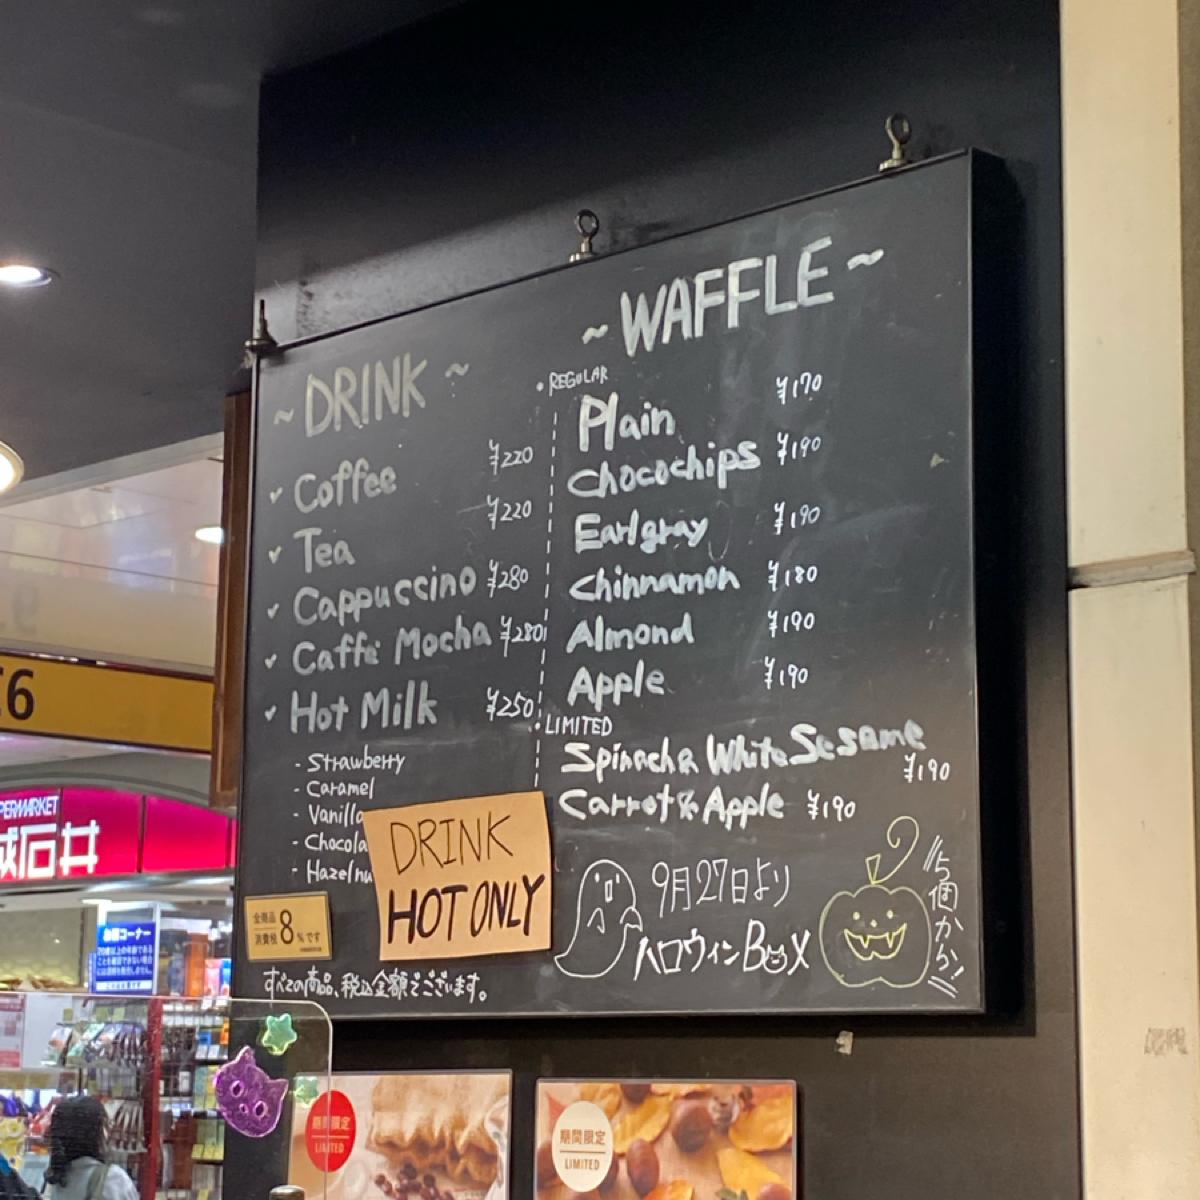 ~ DRINK ~
Coffee ¥220
Tea ¥220
Cappuccino ¥280
Caffè Mocha ¥280
Hot Milk ¥250
- Strawberry
- Caramel
- Vanilla
- Chocola
- Hazelnu
DRINK
HOT ONLY
全商品
消費税 8%です
すべての商品、税込金額でございます。
~ WAFFLE ~
• REGULAR
Plain ¥170
Chocochips ¥190
Earlgray ¥190
Chinnamon ¥180
Almond ¥190
Apple ¥190
• LIMITED
Spinach & White Sesame
¥190
Carrot & Apple ¥190
9月27日より
ハロウィンBOX
5個から!
6
PERMARKET
城石井
お酒コーナー
期間限定
LIMITED
期間限定
LIMITED